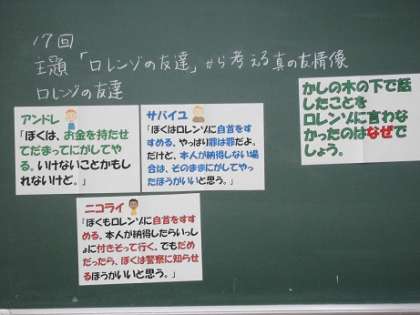 17回
主題「ロレンゾの友達」から考える真の友情像
ロレンゾの友達
アンドレ
「ぼくは、お金を持たせ
てだまってにがしてや
る。いけないことかもし
れないけど。」
サバイユ
「ぼくはロレンゾに自首をすす
める。やっぱり罪は罪だよ。
だけど、本人が納得しない場
合は、そのままにがしてやっ
たほうがいいと思う。」
ニコライ
「ぼくもロレンゾに自首をすす
める。本人が納得したらいっし
ょに付きそって行く。でもだ
めだったら、ぼくは警察に知らせ
るほうがいいと思う。」
かしの木の下で話
したことを
ロレンゾに言わな
かったのはなぜで
しょう。